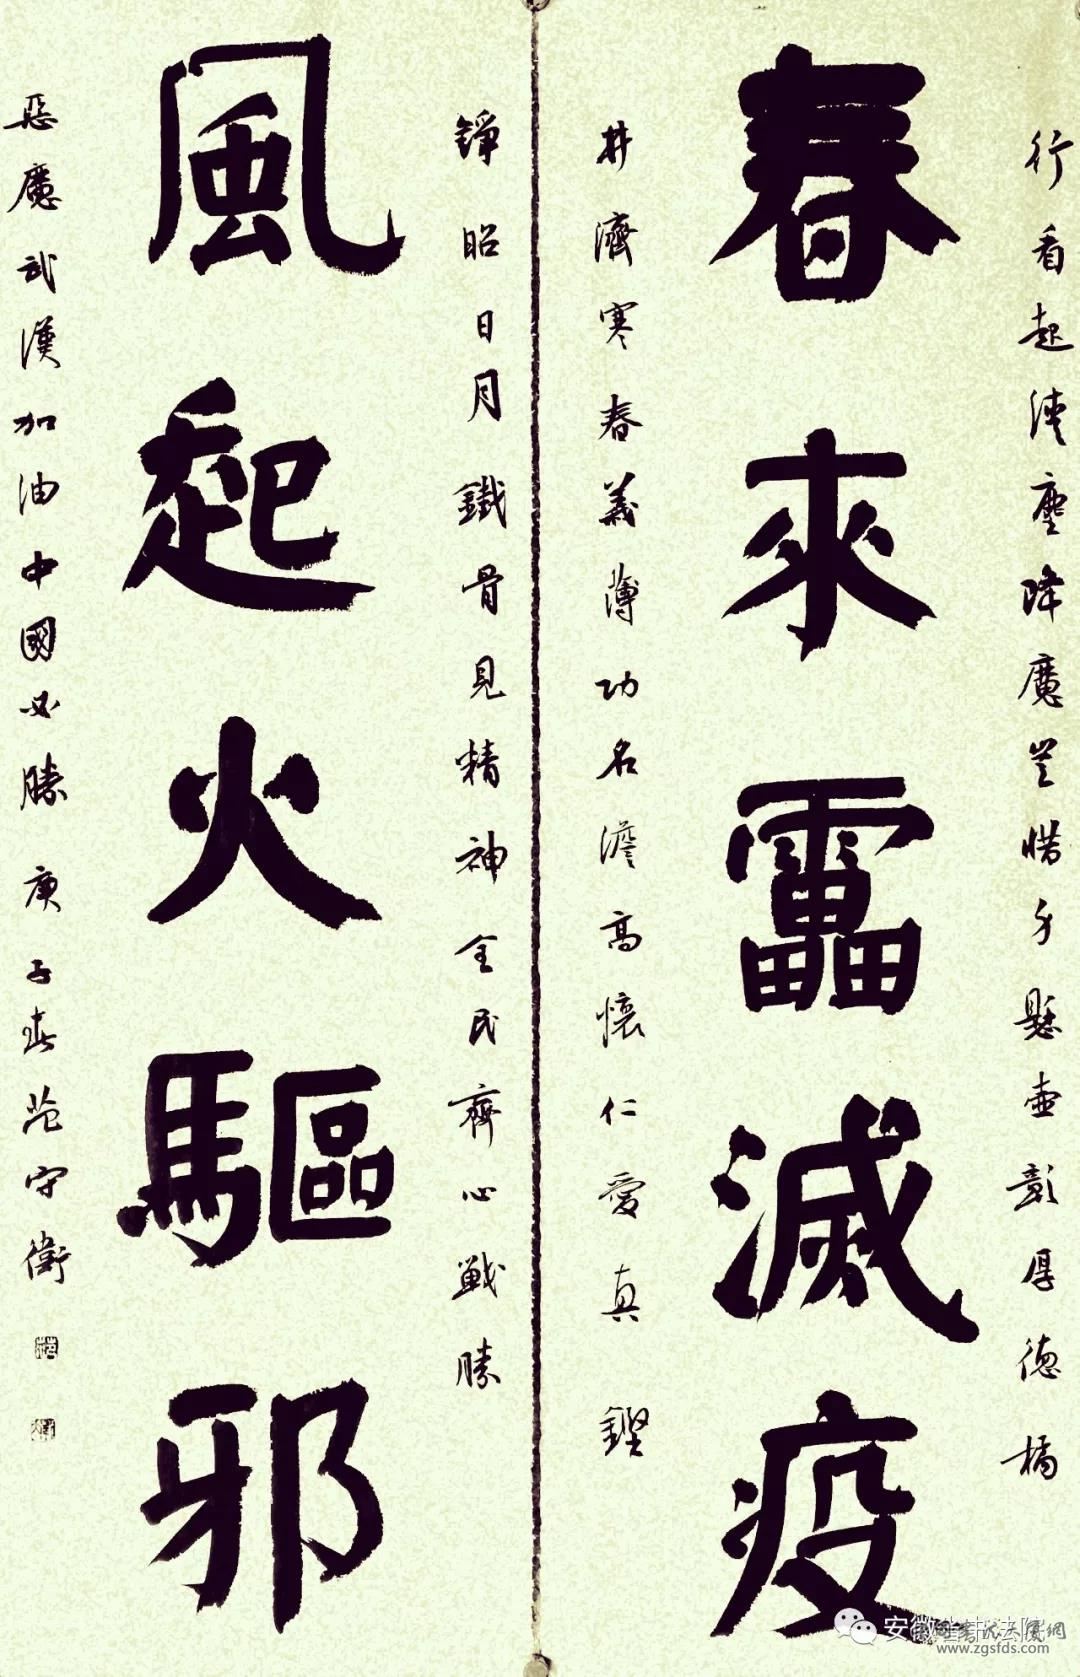 行看起陡塵降魔豈惜身懸壺彰厚德橘
春來靁滅疫
井濟寒春義薄功名澹高懷仁愛真鏗
錚昭日月鐵骨見精神全民齊心戰勝
風起火驅邪
惡魔武漢加油中國必勝庚子春范守衛
安徽省
法院
www.zgsfds.com